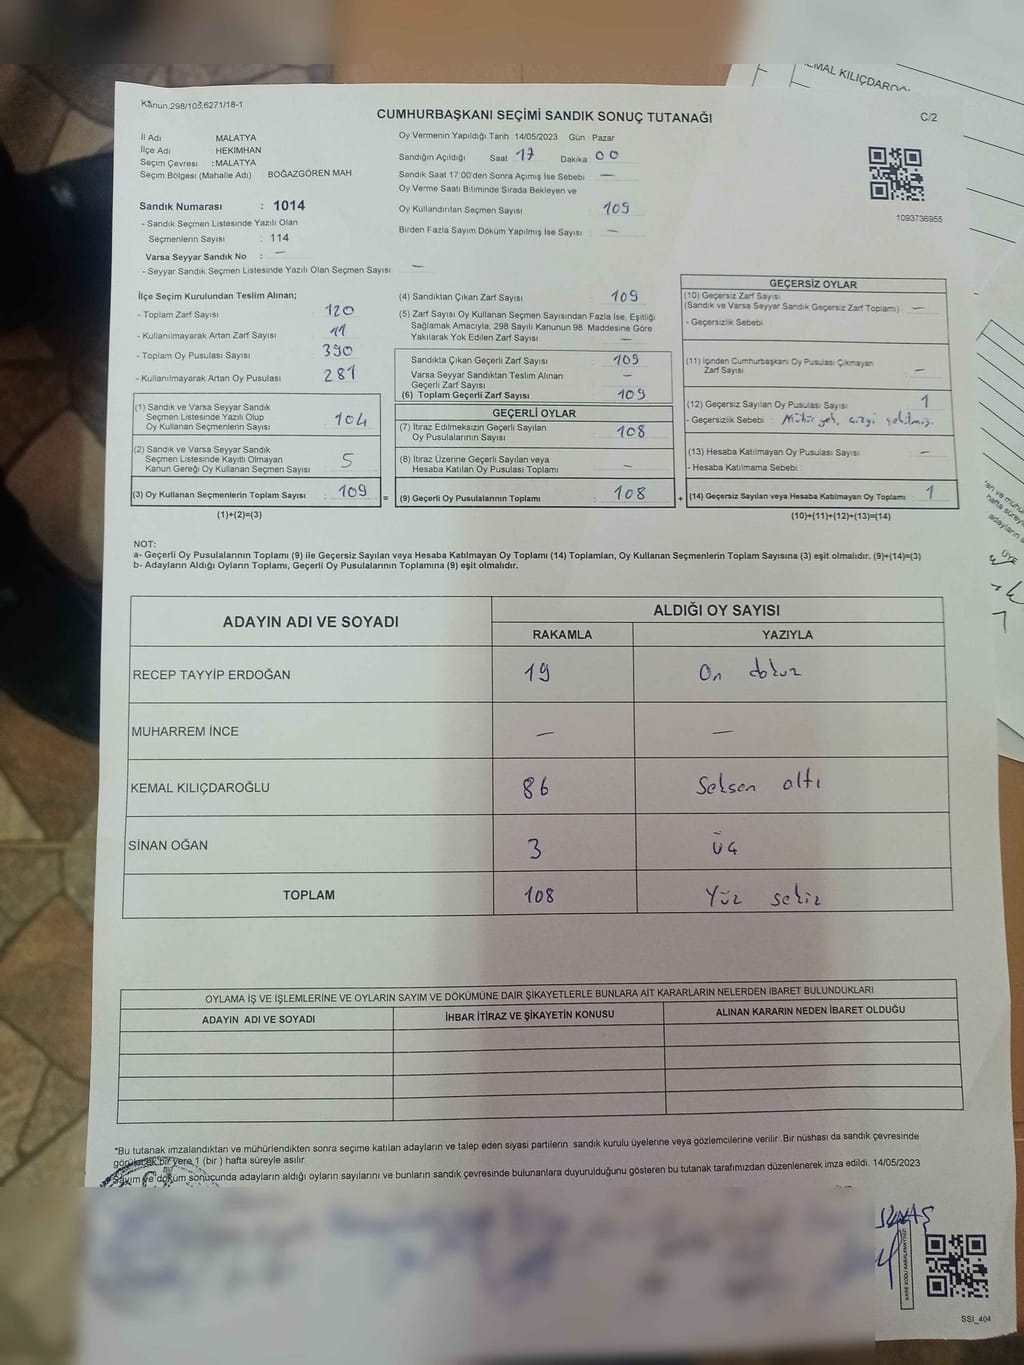 Kanun.298/103,6271/18-1
CUMHURBAŞKANI SEÇİMİ SANDIK SONUÇ TUTANAĞI
C/2
İl Adı MALATYA
İlçe Adı HEKİMHAN
Seçim Çevresi : MALATYA
Seçim Bölgesi (Mahalle Adı) BOĞAZGÖREN MAH
Sandık Numarası : 1014
- Sandık Seçmen Listesinde Yazılı Olan
Seçmenlerin Sayısı : 114
Varsa Seyyar Sandık No : —
- Seyyar Sandık Seçmen Listesinde Yazılı Olan Seçmen Sayısı —
Oy Vermenin Yapıldığı Tarih 14/05/2023 Gün Pazar
Sandığın Açıldığı Saat 17 Dakika 00
Sandık Saat 17:00'den Sonra Açımış İse Sebebi —
Oy Verme Saati Bitiminde Sırada Bekleyen ve
Oy Kullandırılan Seçmen Sayısı 109
Birden Fazla Sayım Döküm Yapılmış İse Sayısı —
1093736955
İlçe Seçim Kurulundan Teslim Alınan;
- Toplam Zarf Sayısı 120
- Kullanılmayarak Artan Zarf Sayısı 11
- Toplam Oy Pusulası Sayısı 390
- Kullanılmayarak Artan Oy Pusulası 281
(1) Sandık ve Varsa Seyyar Sandık
Seçmen Listesinde Yazılı Olup
Oy Kullanan Seçmenlerin Sayısı 104
(2) Sandık ve Varsa Seyyar Sandık
Seçmen Listesinde Kayıtlı Olmayan
Kanun Gereği Oy Kullanan Seçmen Sayısı 5
(3) Oy Kullanan Seçmenlerin Toplam Sayısı : 109 =
(1)+(2)=(3)
(4) Sandıktan Çıkan Zarf Sayısı 109
(5) Zarf Sayısı Oy Kullanan Seçmen Sayısından Fazla İse, Eşitliği
Sağlamak Amacıyla, 298 Sayılı Kanunun 98. Maddesine Göre
Yakılarak Yok Edilen Zarf Sayısı —
Sandıkta Çıkan Geçerli Zarf Sayısı 109
Varsa Seyyar Sandıktan Teslim Alınan
Geçerli Zarf Sayısı —
(6) Toplam Geçerli Zarf Sayısı 109
GEÇERLİ OYLAR
(7) İtiraz Edilmeksizin Geçerli Sayılan
Oy Pusulalarının Sayısı 108
(8) İtiraz Üzerine Geçerli Sayılan veya
Hesaba Katılan Oy Pusulası Toplamı —
(9) Geçerli Oy Pusulalarının Toplamı : 108 +
GEÇERSİZ OYLAR
(10) Geçersiz Zarf Sayısı
(Sandık ve Varsa Seyyar Sandık Geçersiz Zarf Toplamı) —
- Geçersizlik Sebebi
(11) İçinden Cumhurbaşkanı Oy Pusulası Çıkmayan
Zarf Sayısı —
(12) Geçersiz Sayılan Oy Pusulası Sayısı 1
- Geçersizlik Sebebi : Mühür yok, çizgi
(13) Hesaba Katılmayan Oy Pusulası Sayısı —
- Hesaba Katılmama Sebebi
(14) Geçersiz Sayılan veya Hesaba Katılmayan Oy Toplamı 1
(10)+(11)+(12)+(13)=(14)
NOT:
a- Geçerli Oy Pusulalarının Toplamı (9) ile Geçersiz Sayılan veya Hesaba Katılmayan Oy Toplamı (14) Toplamları, Oy Kullanan Seçmenlerin Toplam Sayısına (3) eşit olmalıdır. (9)+(14)=(3)
b- Adayların Aldığı Oyların Toplamı, Geçerli Oy Pusulalarının Toplamına (9) eşit olmalıdır.
ADAYIN ADI VE SOYADI ALDIĞI OY SAYISI
RAKAMLA YAZIYLA
RECEP TAYYİP ERDOĞAN 19 On dokuz
MUHARREM İNCE — —
KEMAL KILIÇDAROĞLU 86 Seksen altı
SİNAN OĞAN 3 üç
TOPLAM 108 Yüz sekiz
OYLAMA İŞ VE İŞLEMLERİNE VE OYLARIN SAYIM VE DÖKÜMÜNE DAİR ŞİKAYETLERLE BUNLARA AİT KARARLARIN NELERDEN İBARET BULUNDUKLARI
ADAYIN ADI VE SOYADI İHBAR İTİRAZ VE ŞİKAYETİN KONUSU ALINAN KARARIN NEDEN İBARET OLDUĞU
*Bu tutanak imzalandıktan ve mühürlendikten sonra seçime katılan adayların ve talep eden siyasi partilerin sandık kurulu üyelerine veya gözlemcilerine verilir .Bir nüshası da sandık çevresinde
görülecek bir yere 1 (bir ) hafta süreyle asılır.
Sayım ve döküm sonuçunda adayların aldığı oyların sayılarını ve bunların sandık çevresinde bulunanlara duyurulduğunu gösteren bu tutanak tarafımızdan düzenlenerek imza edildi. 14/05/2023
SSI_404